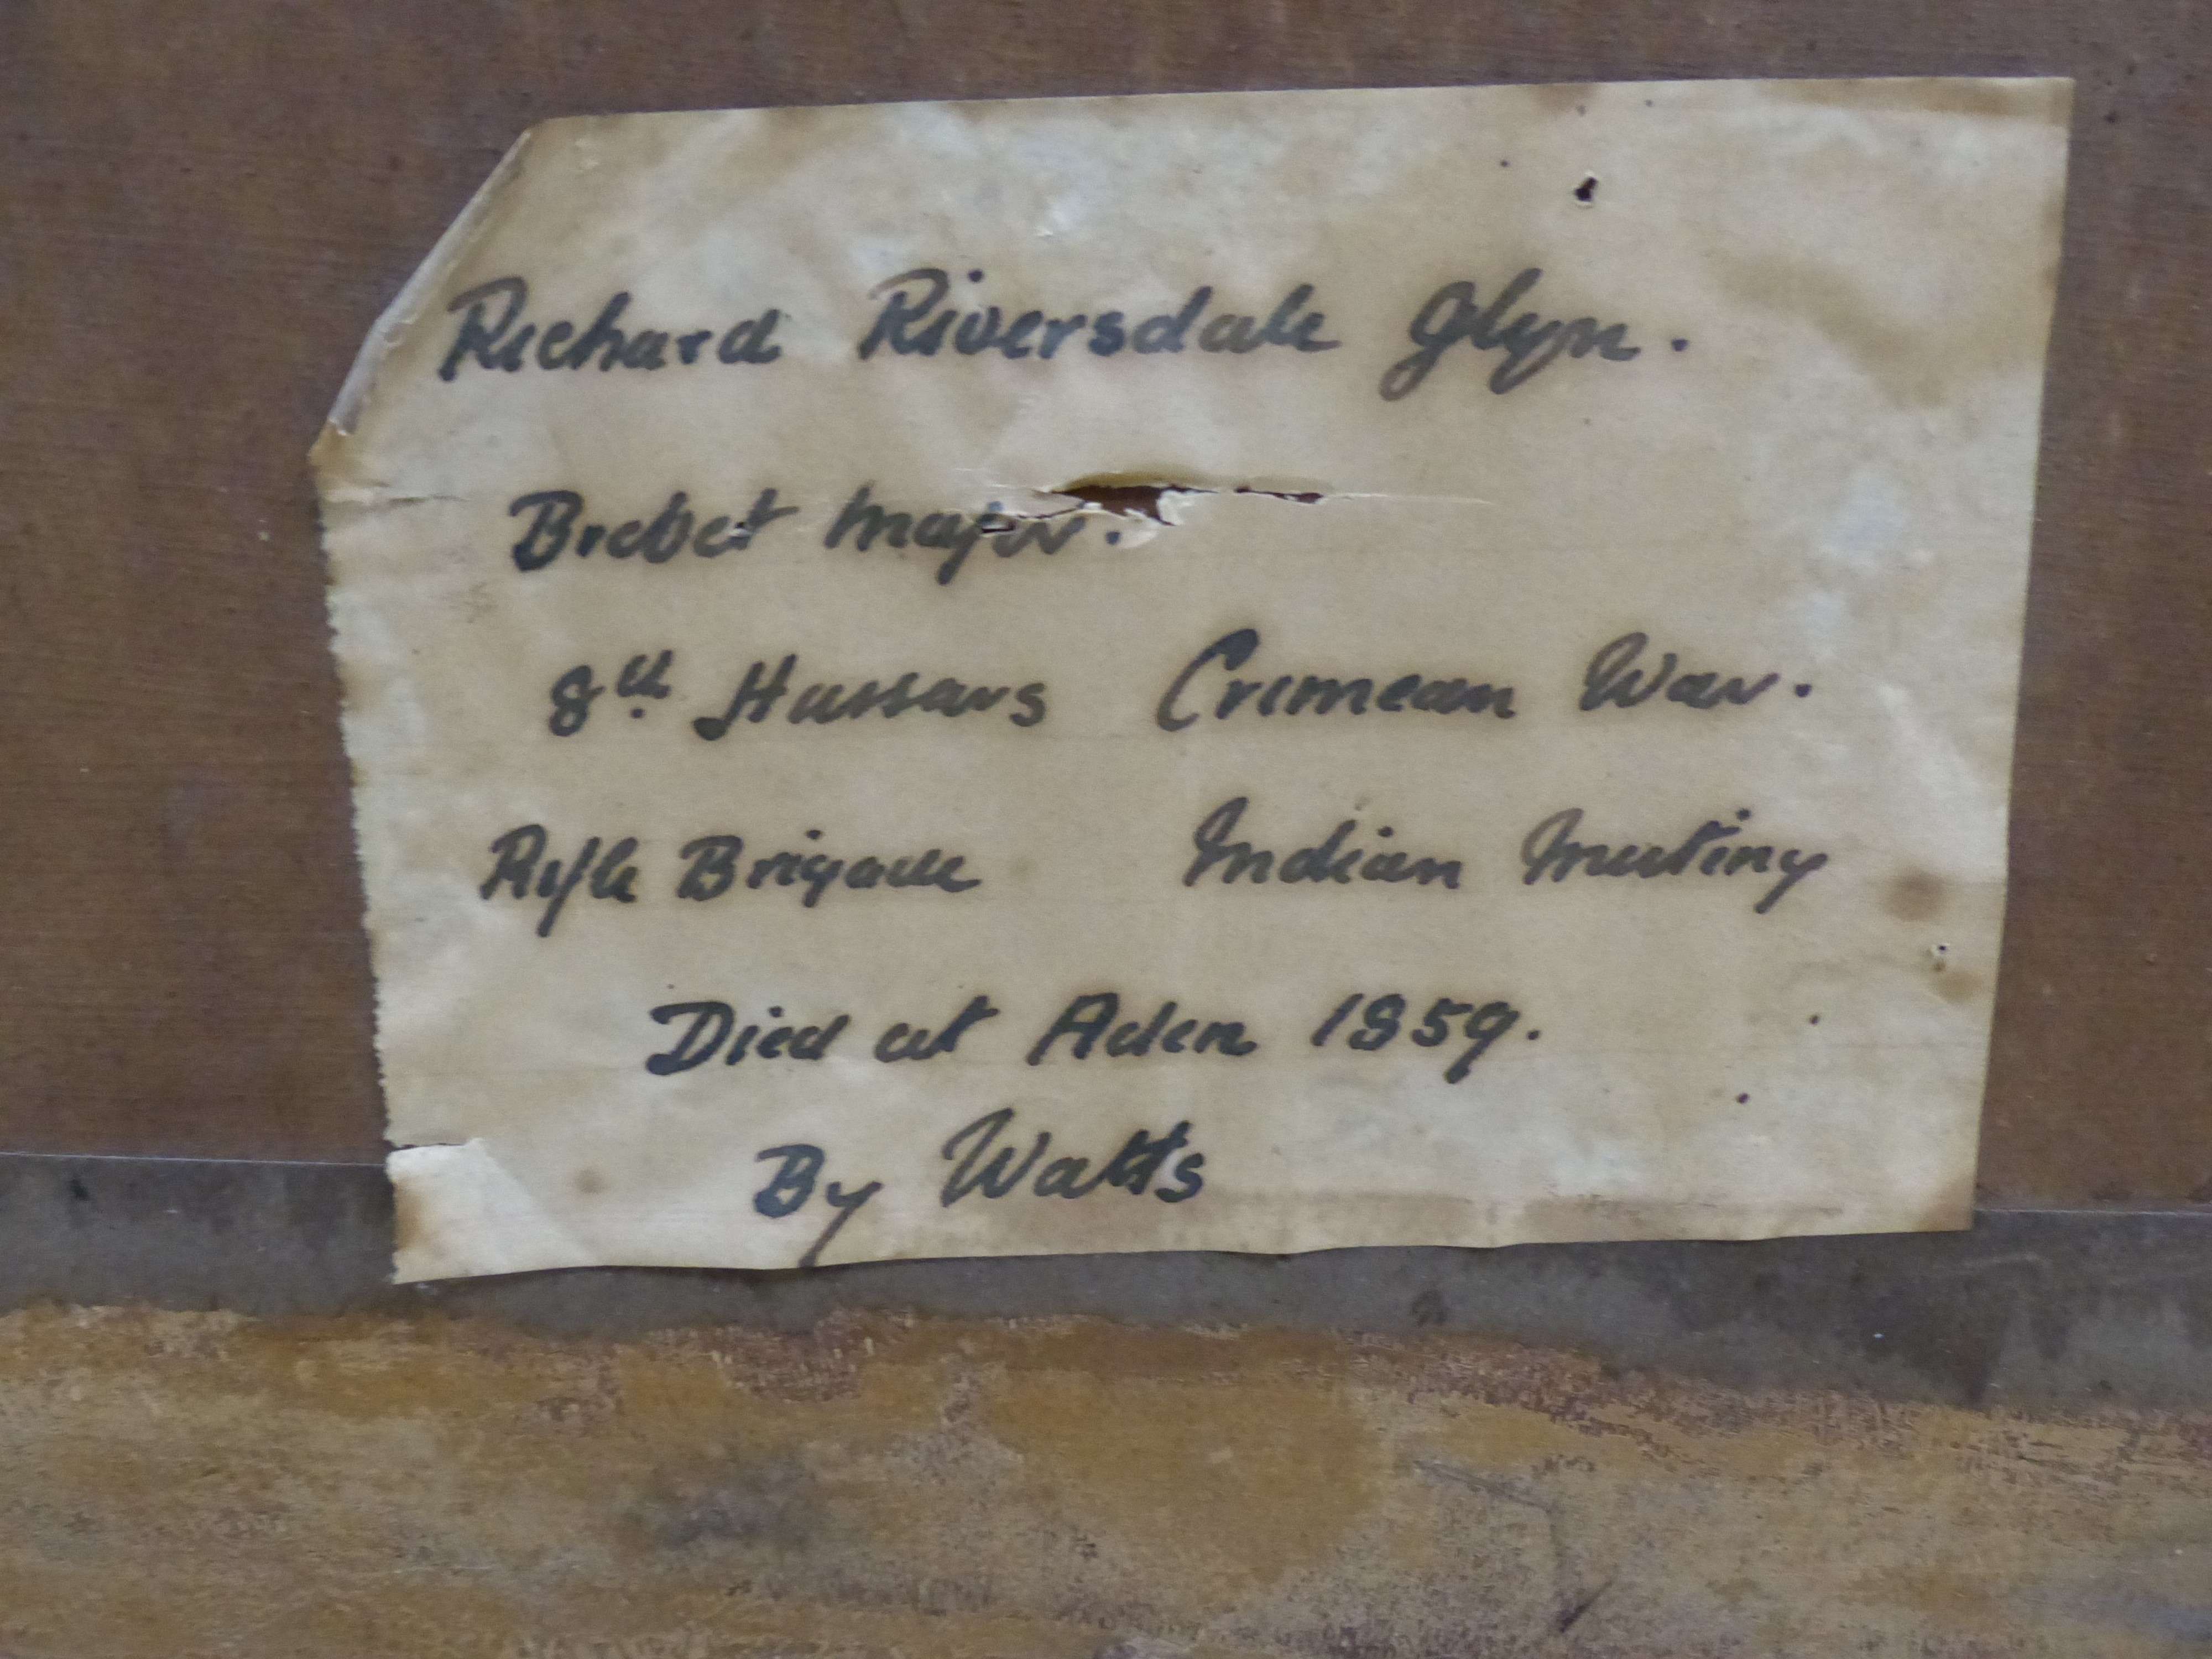 Richard Riversdale Glyn.
Brebet Major.
8th Hussars Crimean War.
Rifle Brigade Indian Mutiny
Died at Aden 1859.
By Watts